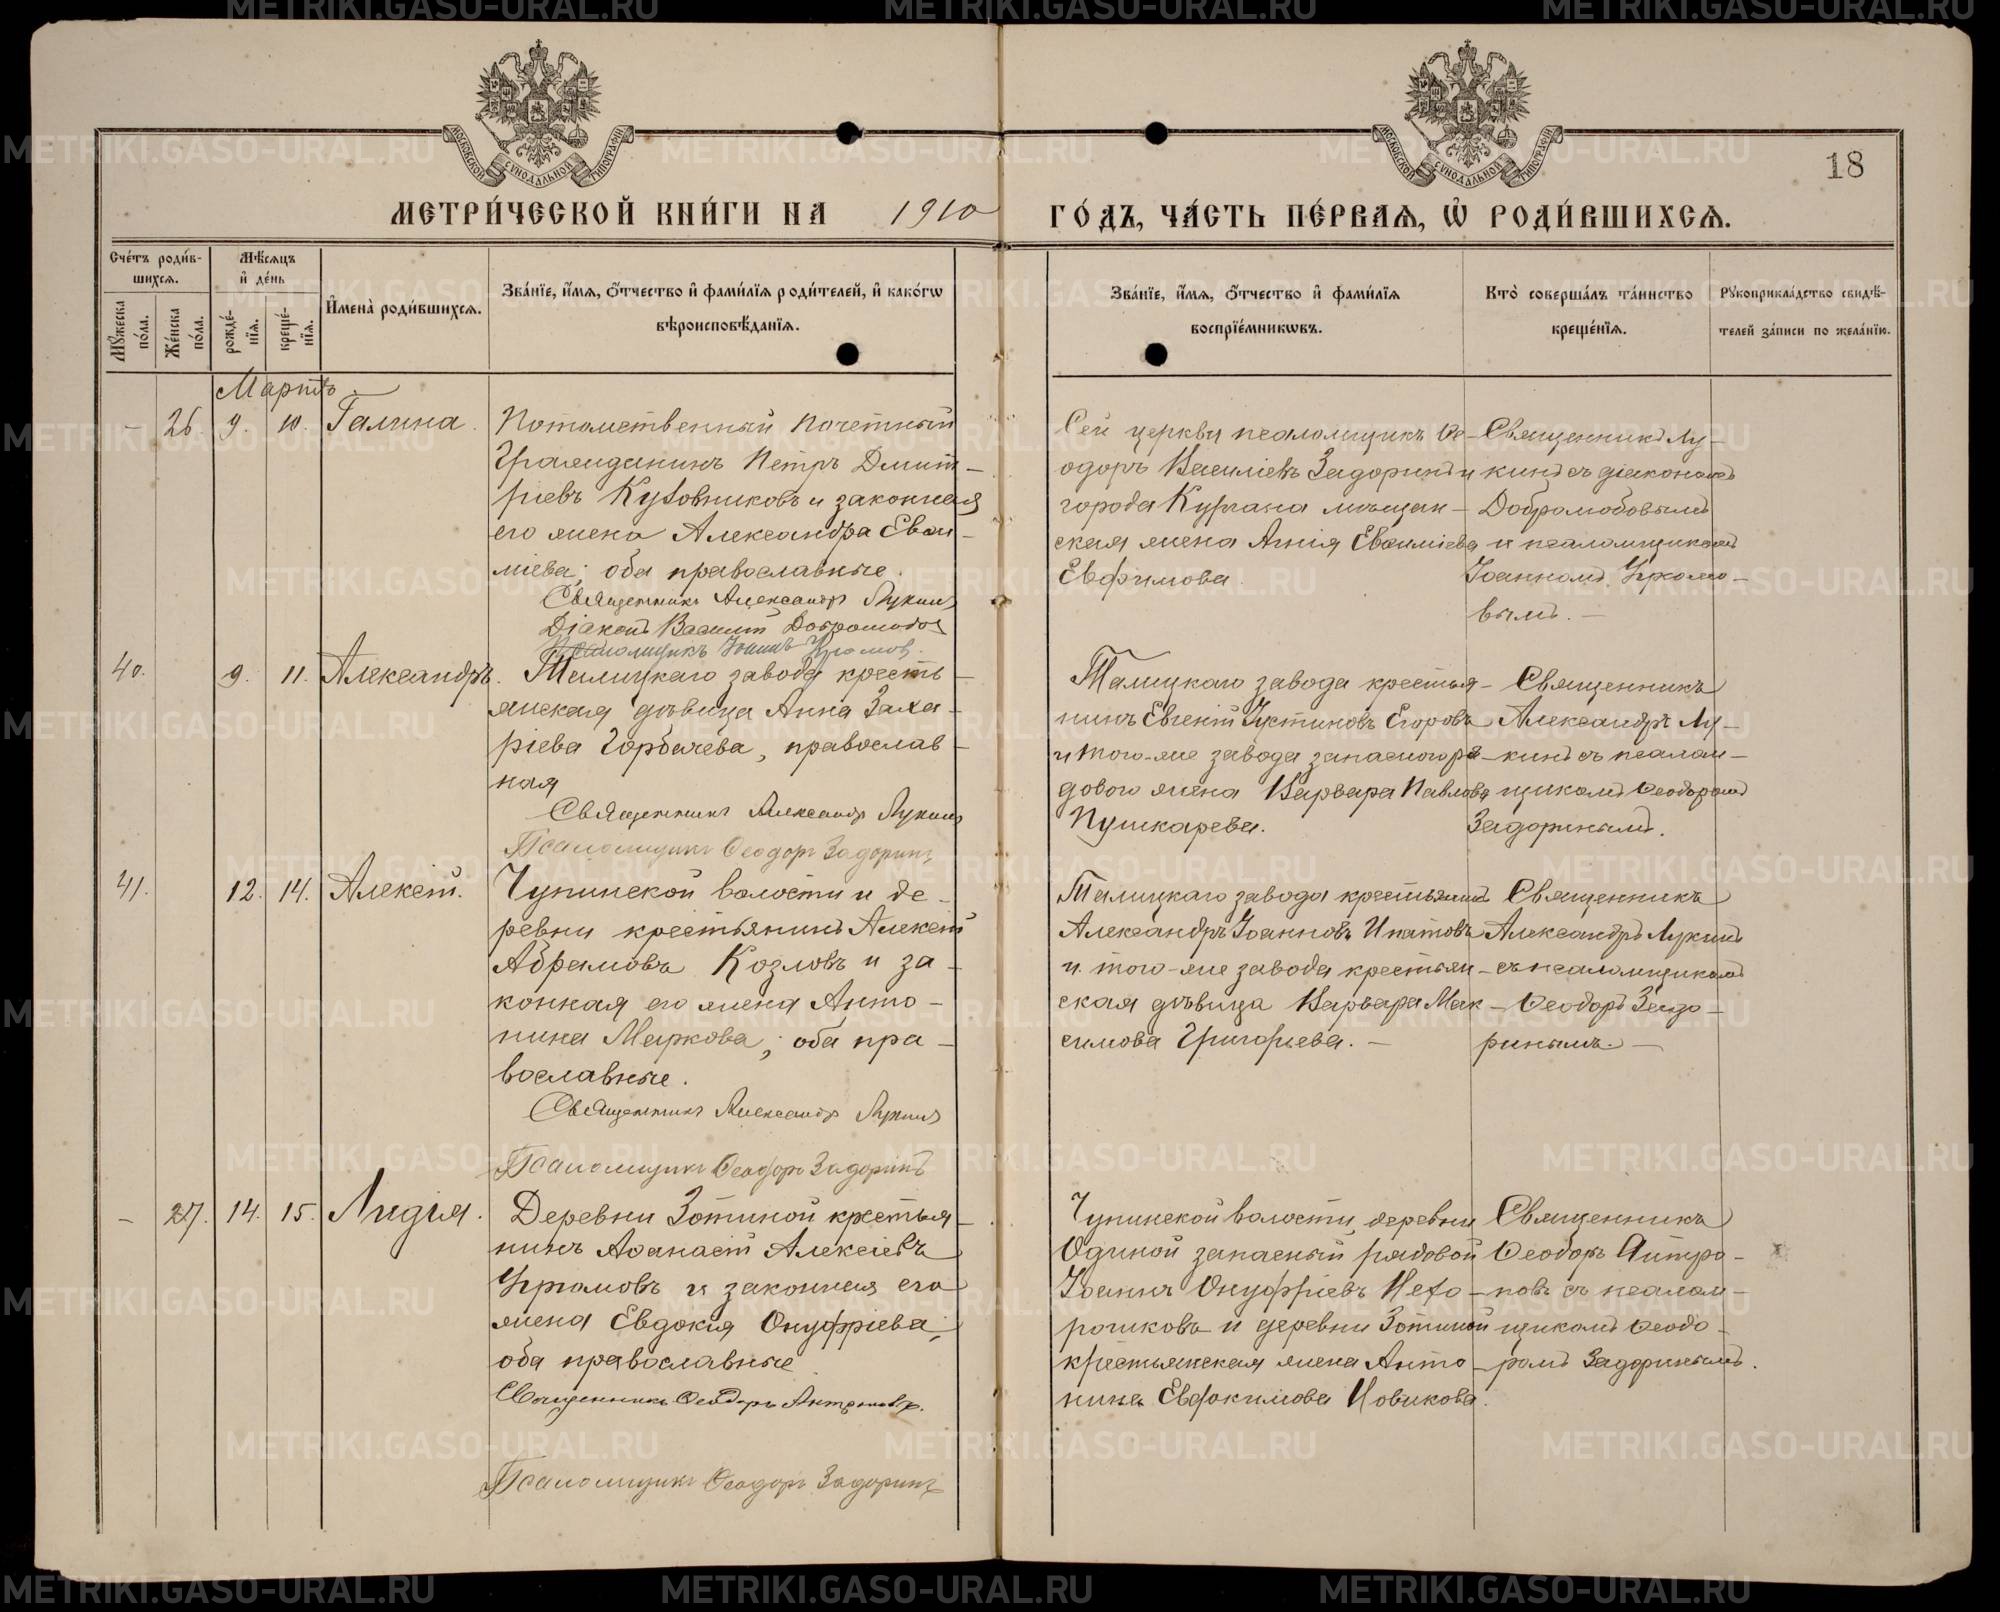 18
МЕТРИ́ЧЕСКОЙ КНИ́ГИ НА 1910 ГО́ДЪ, ЧА́СТЬ ПЕ́РВАѦ, Ѡ҆ РОДИ́ВШИХСѦ.
Сче́тъ роди́в-
шихсѧ.
Мꙋ́жеска по́ла.
Же́нска по́ла.
Мѣ́сѧцъ
и҆ де́нь
рожде́-
нїѧ.
креще́-
нїѧ.
И҆мена̀ роди́вшихсѧ.
Зва́нїе, и҆́мѧ, ѻ҆́тчество и҆ фами́лїѧ роди́телей, и҆ како́гѡ
вѣроисповѣ́данїѧ.
Зва́нїе, и҆́мѧ, ѻ҆́тчество и҆ фами́лїѧ
воспрїе́мникѡвъ.
Кто̀ соверша́лъ та́инство
креще́нїѧ.
Рꙋкоприкла́дство свидѣ́-
телей за́писи по жела́нїю.
Мартъ
– 26. 9. 10. Галина.
Потомственный почетный
гражданинъ Петръ Дмит-
ріевъ Кузовниковъ и законная
его жена Александра Евѳи-
міева; оба православные.
Священникъ Александръ Лукинъ
Діаконъ Василій Добролюбов
Псаломщикъ Іоаннъ Упромов.
Сей церкви псаломщикъ Ѳе-
одоръ Василіевъ Задоринъ и
города Кургана мѣщан-
ская жена Агнія Евѳиміева
Евфимова.
Священникъ Лу-
кинъ съ діакономъ
Добролюбовымъ
и псаломщикомъ
Іоанномъ Упромо-
вымъ. –
40. 9. 11. Александръ.
Талицкаго завода кресть-
янская дѣвица Анна Заха-
ріева Горбачева, православ-
ная
Священникъ Александръ Лукинъ
Псаломщикъ Ѳеодоръ Задоринъ
Талицкаго завода крестья-
нинъ Евгеній Іустиновъ Егоровъ
и того-же завода запасного ря-
дового жена Варвара Павлова
Пушкарева.
Священникъ
Александръ Лу-
кинъ съ псалом-
щикомъ Ѳеодоромъ
Задоринымъ.
41. 12. 14. Алексій.
Чупинской волости и де-
ревни крестьянинъ Алексій
Абрамовъ Козловъ и за-
конная его жена Анто-
нина Маркова; оба пра-
вославные.
Священникъ Александръ Лукинъ
Псаломщикъ Ѳеодоръ Задоринъ
Талицкаго завода крестьянинъ
Александръ Іоанновъ Ипатовъ
и того-же завода крестьян-
ская дѣвица Варвара Мак-
симова Григорьева. –
Священникъ
Александръ Лукинъ
съ псаломщикомъ
Ѳеодоръ Задо-
ринымъ. –
– 27. 14. 15. Лидія.
Деревни Зотиной крестья-
нинъ Аѳанасій Алексіевъ
Упромовъ и законная его
жена Евдокія Онуфріева;
оба православные
Священникъ Ѳеодоръ Антроповъ.
Псаломщикъ Ѳеодоръ Задоринъ
Чупинской волости, деревни
Одиной запасный рядовой
Іоаннъ Онуфріевъ Него-
рошковъ и деревни Зотиной
крестьянская жена Анто-
нина Евдокимова Новикова.
Священникъ
Ѳеодоръ Антро-
повъ съ псалом-
щикомъ Ѳеодо-
ромъ Задоринымъ.